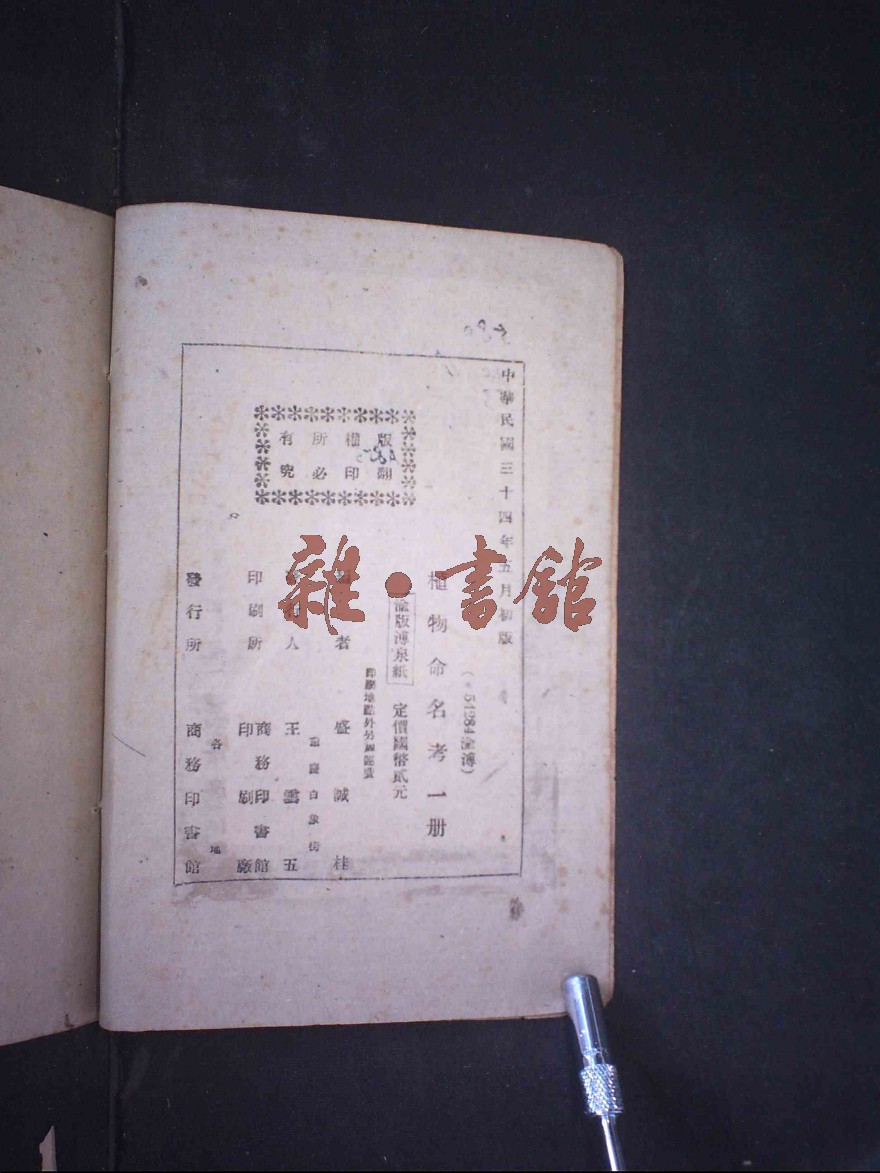 中華民國三十四年五月初版
(51284渝薄)
植物命名考一册
渝版薄泉紙
定價國幣貳元
印刷地點外另加運費
版權所有
翻印必究
著者 盛誠桂
重慶白象街
發行人 王雲五
印刷所 商務印書館
印刷廠
各地
發行所 商務印書館
雜·書館